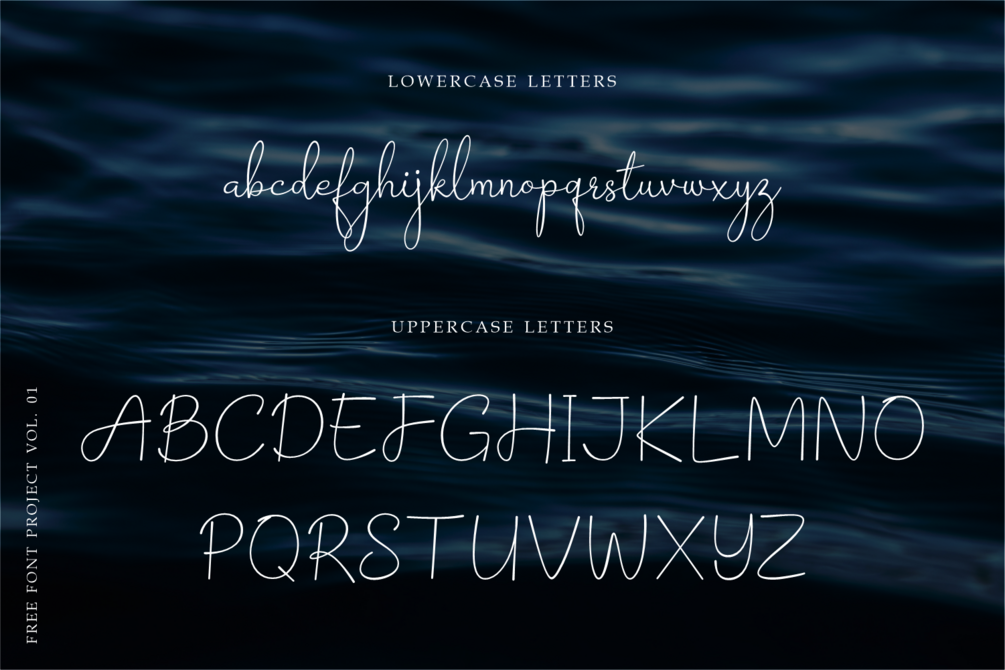 LOWERCASE LETTERS
abcdefghijklmnopqrstuvwxyz
UPPERCASE LETTERS
ABCDEFGHIJKLMNO
PQRSTUVWXYZ
FREE FONT PROJECT VOL. 01